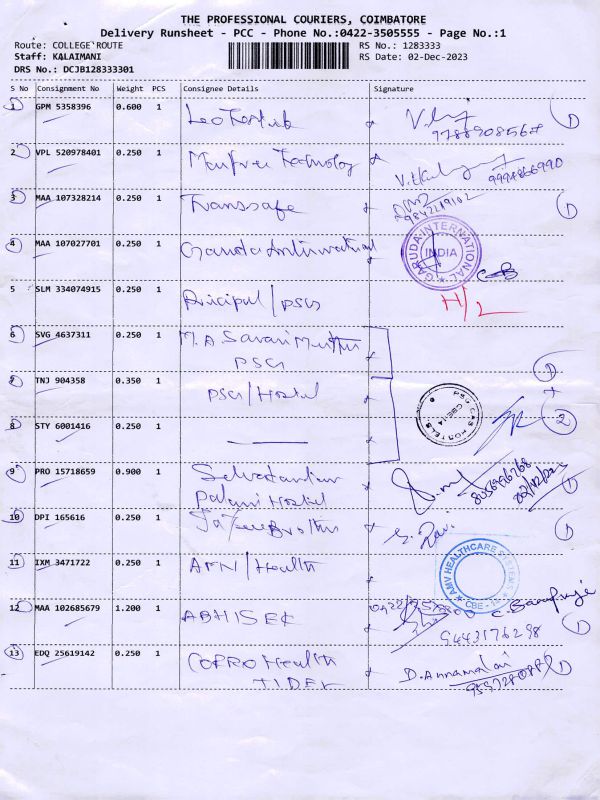 THE PROFESSIONAL COURIERS, COIMBATORE
Delivery Runsheet - PCC - Phone No.:0422-3505555 - Page No.:1
Route: COLLEGE ROUTE
Staff: KALAIMANI
DRS No.: DCJB128333301
RS No.: 1283333
RS Date: 02-Dec-2023
S No Consignment No Weight PCS Consignee Details Signature
1 GPM 5358396 0.600 1
2 VPL 520978401 0.250 1 Technology
3 MAA 107328214 0.250 1 Transsafe
9842219102
4 MAA 107027701 0.250 1 Garuda International
GARUDA INTERNATIONAL
INDIA
5 SLM 334074915 0.250 1 Principal / PSG
H/L
6 SVG 4637311 0.250 1 M.A. Savari Muthu
PSG
7 TNJ 904358 0.350 1 PSG / Hostel
PSG CAS HOSTELS
CBE-14
8 STY 6001416 0.250 1
2
9 PRO 15718659 0.900 1
Palani Hostel
10 DPI 165616 0.250 1
11 IXM 3471722 0.250 1 / Health
AMV HEALTHCARE SYSTEMS
CBE -
12 MAA 102685679 1.200 1 ABHISEK
9443176298
13 EDQ 25619142 0.250 1 Health D. Annamalai
TIDEL